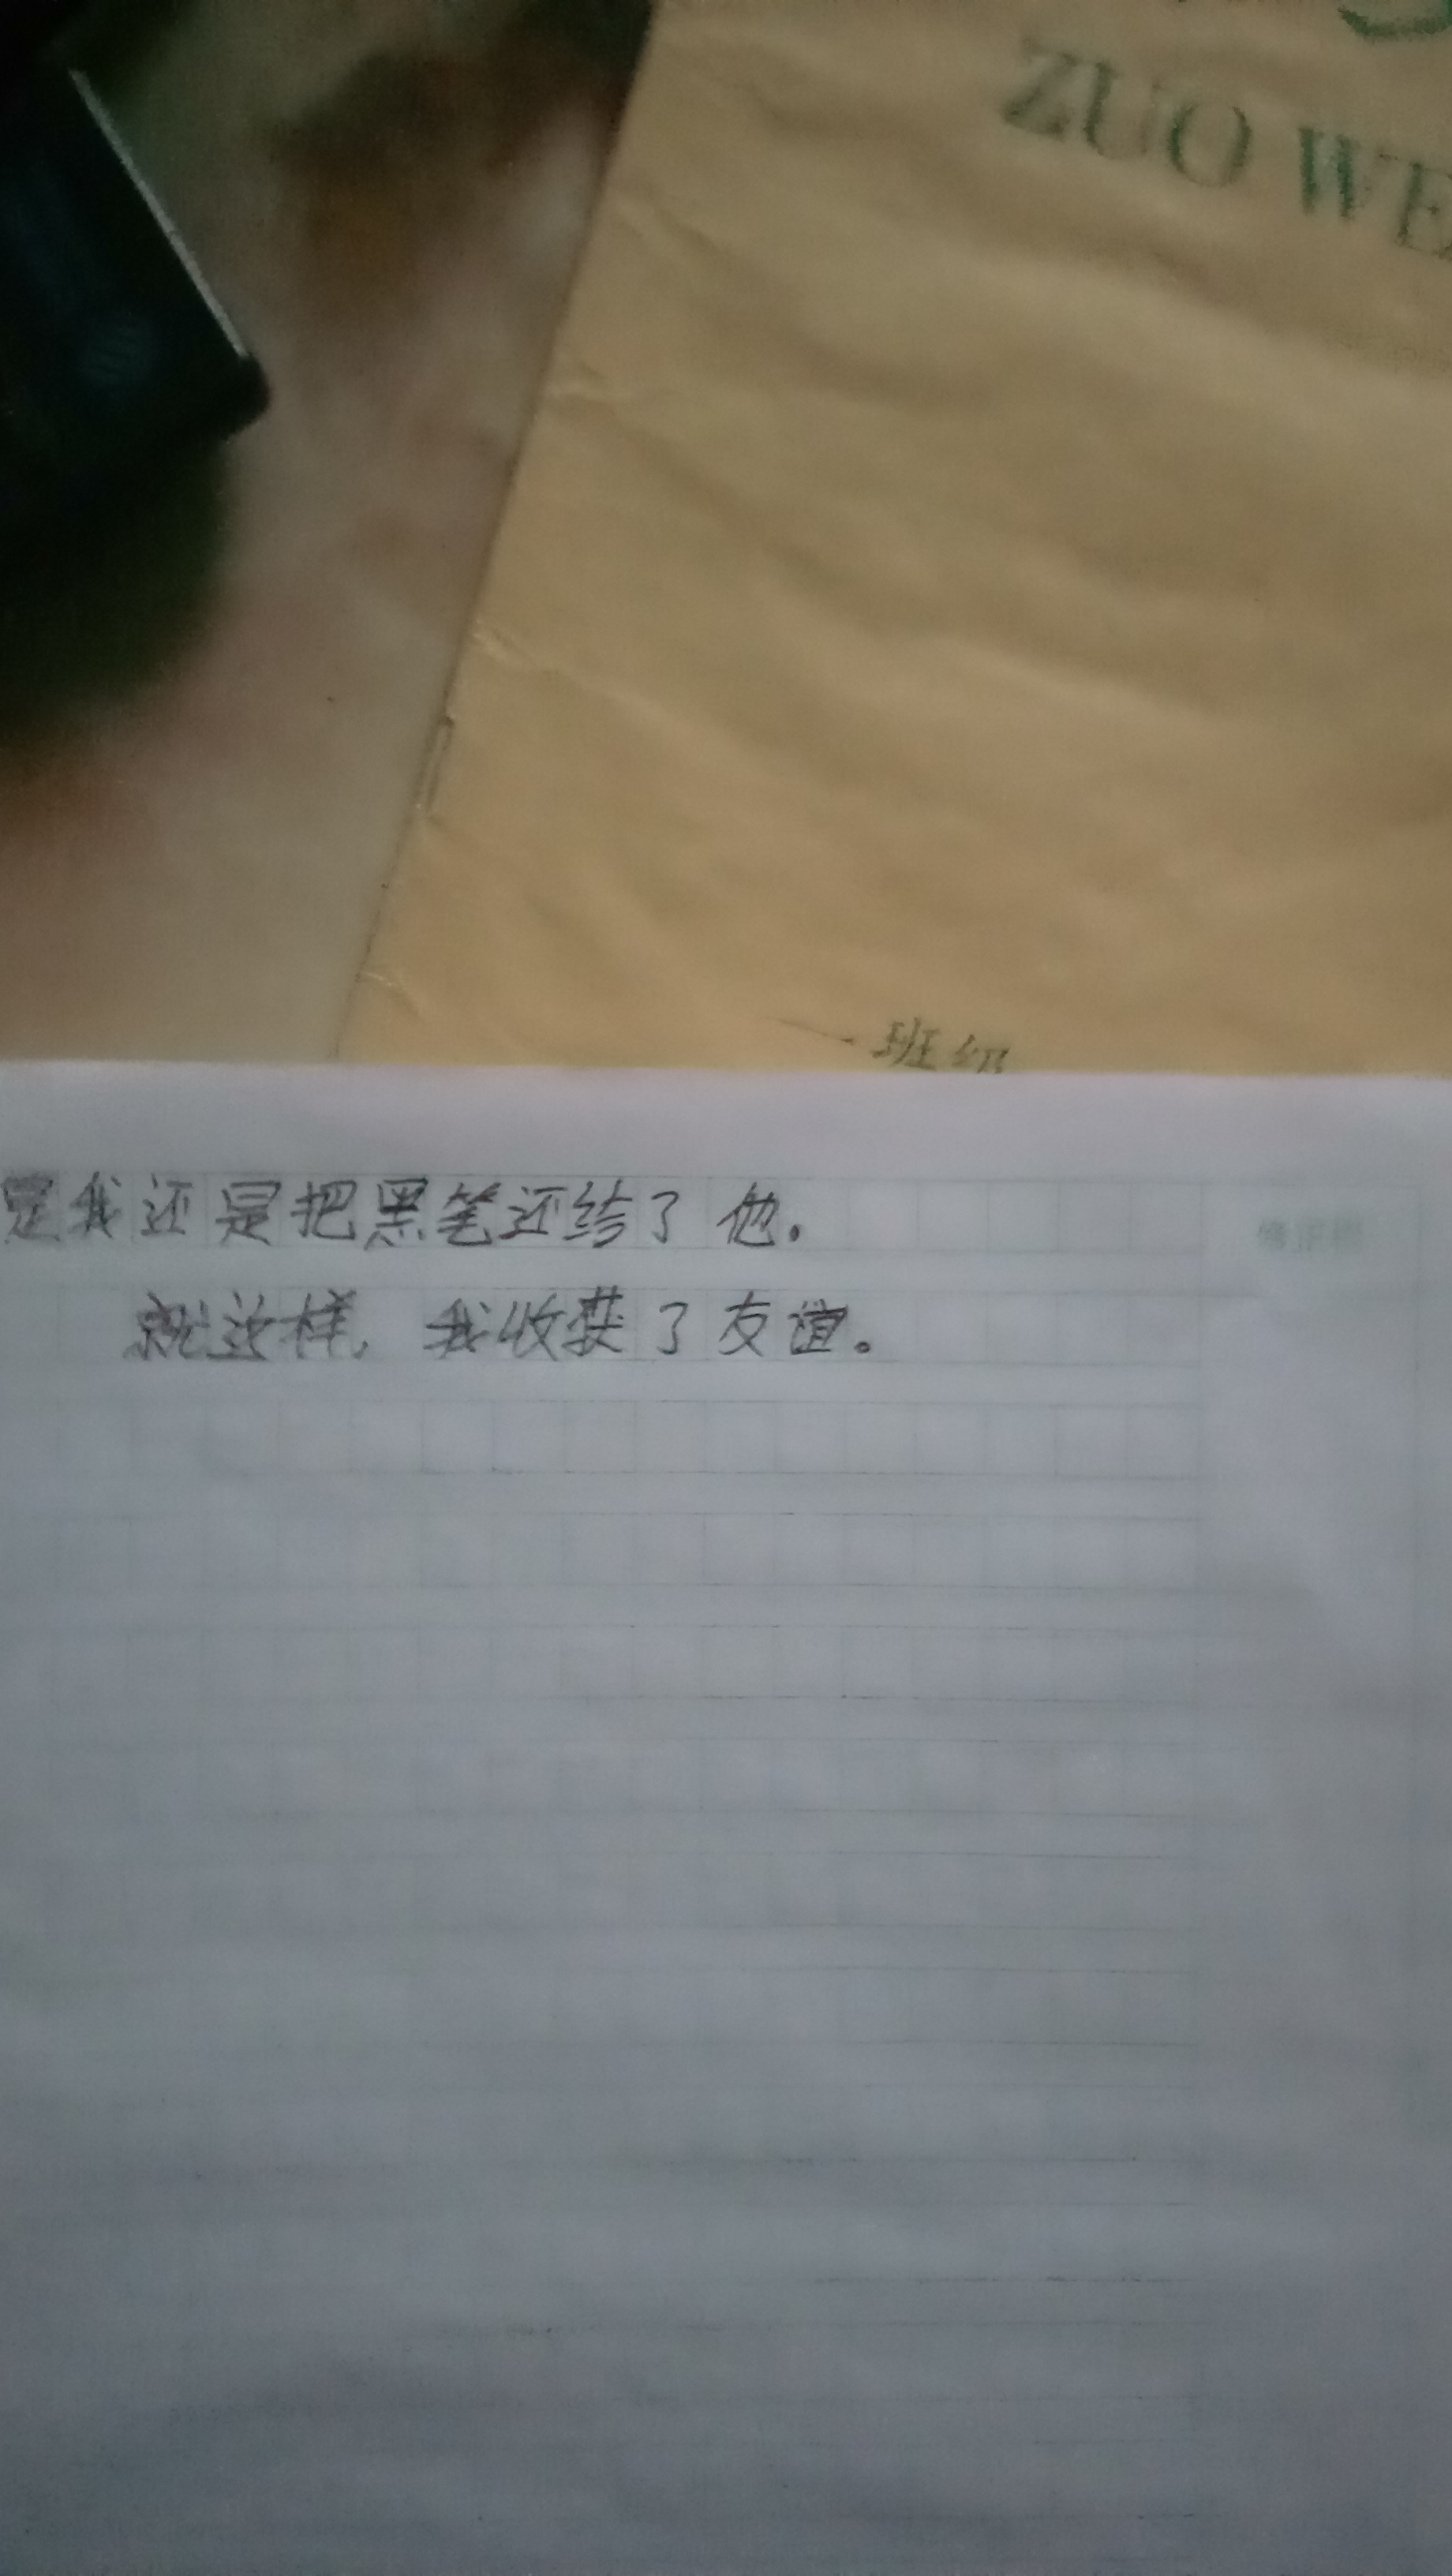 ZUO WE
班级
是我还是把黑笔还给了他。
就这样，我收获了友谊。